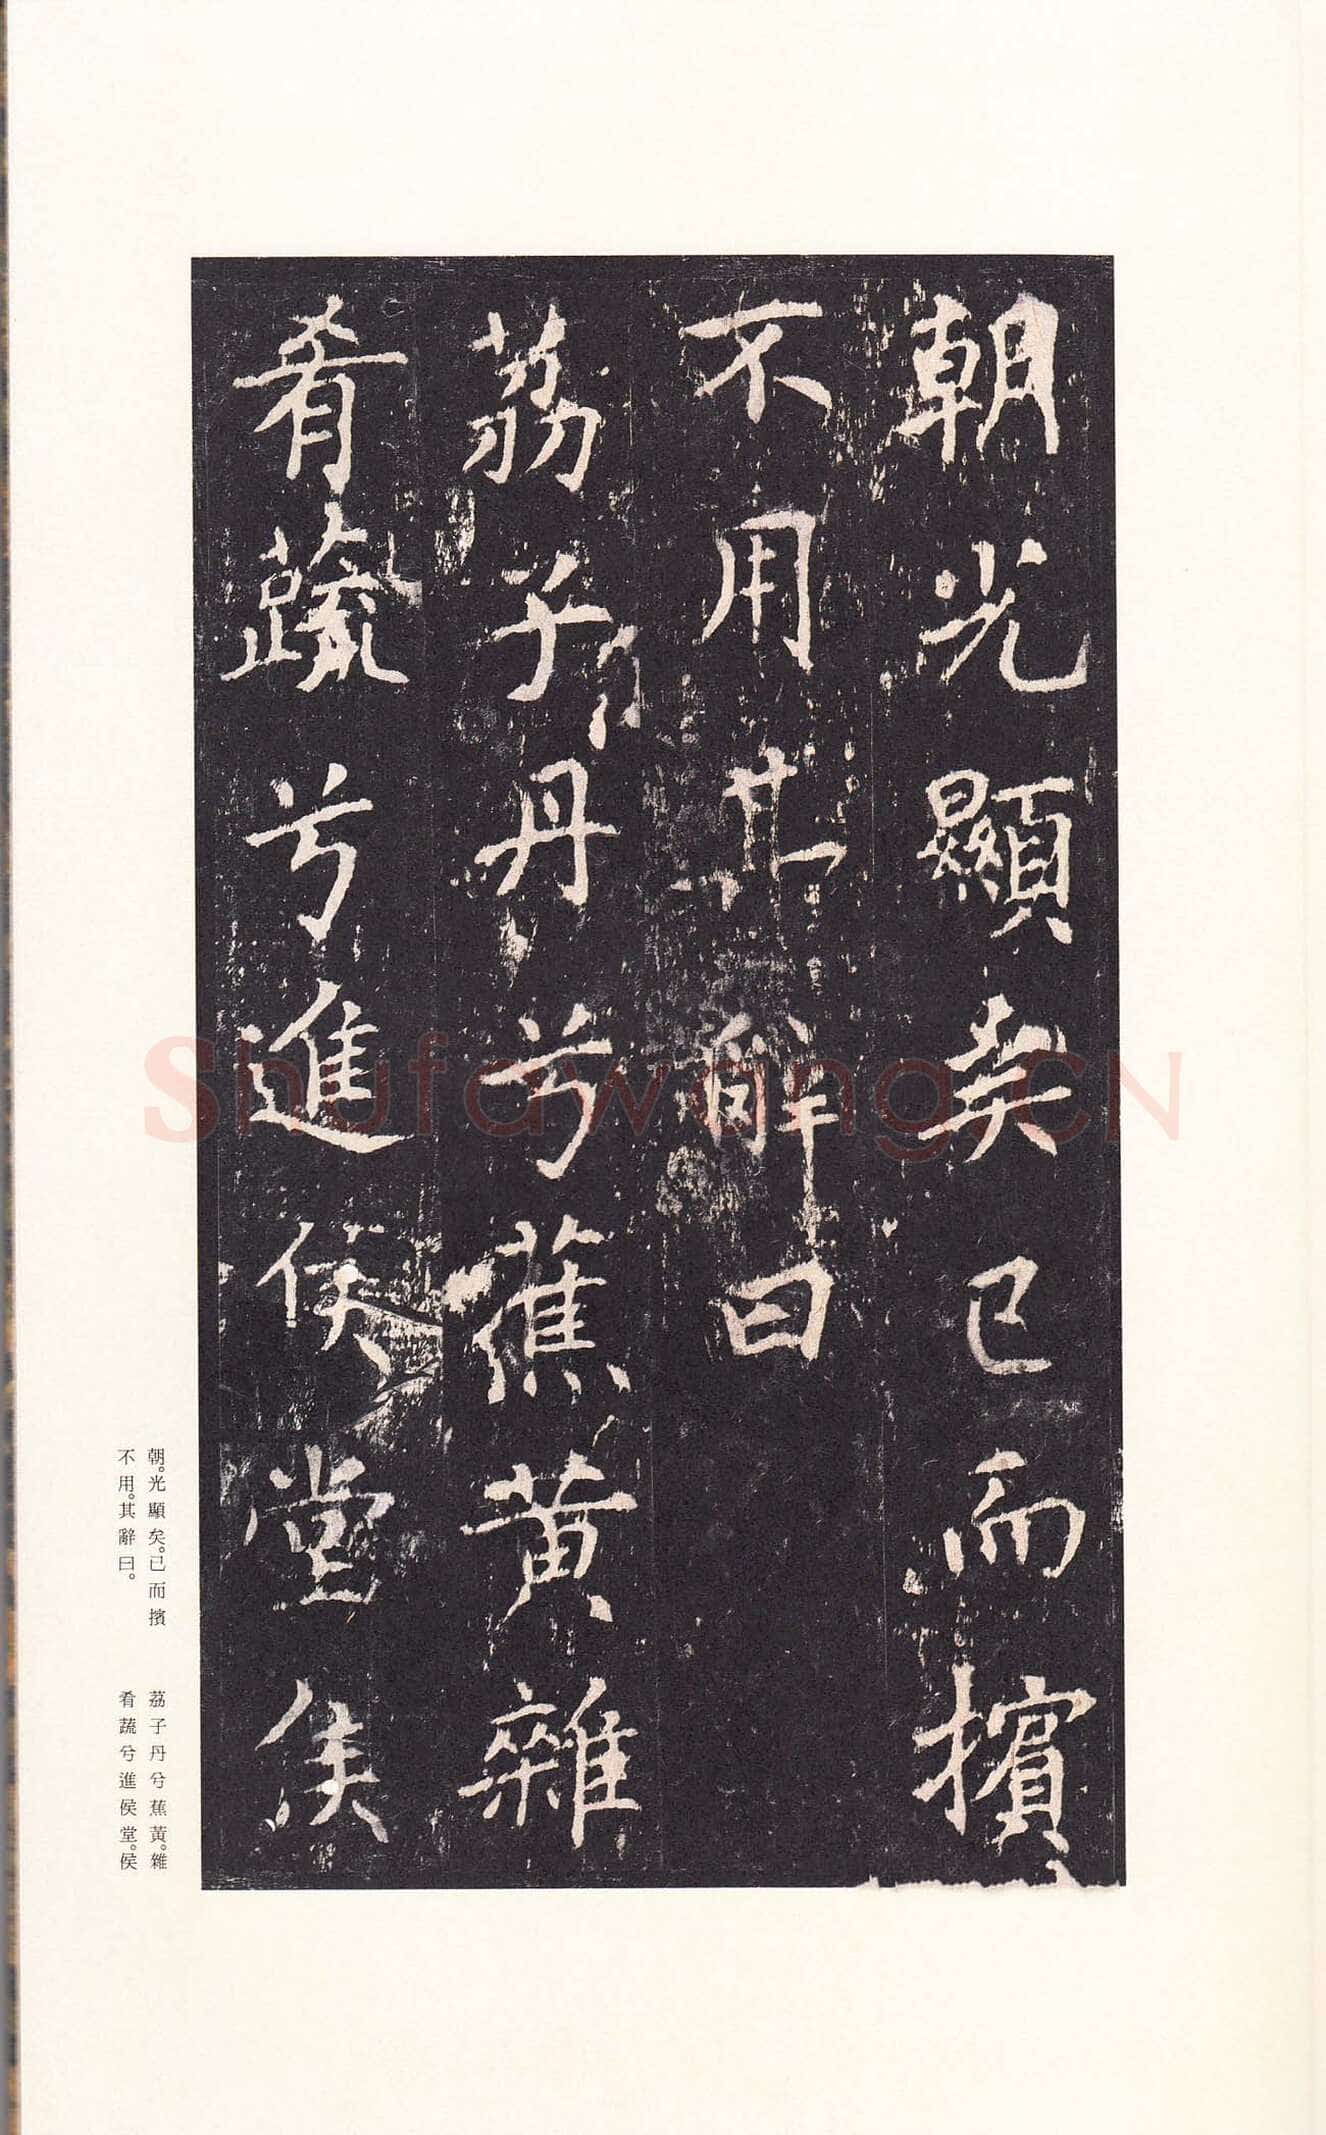 朝光顯矣已而擯
不用其辭曰
荔子丹兮蕉黃雜
肴蔬兮進侯堂侯
朝。光顯矣。已而擯
不用。其辭曰。
荔子丹兮蕉黃。雜
肴蔬兮進侯堂。侯
Shufawang.CN